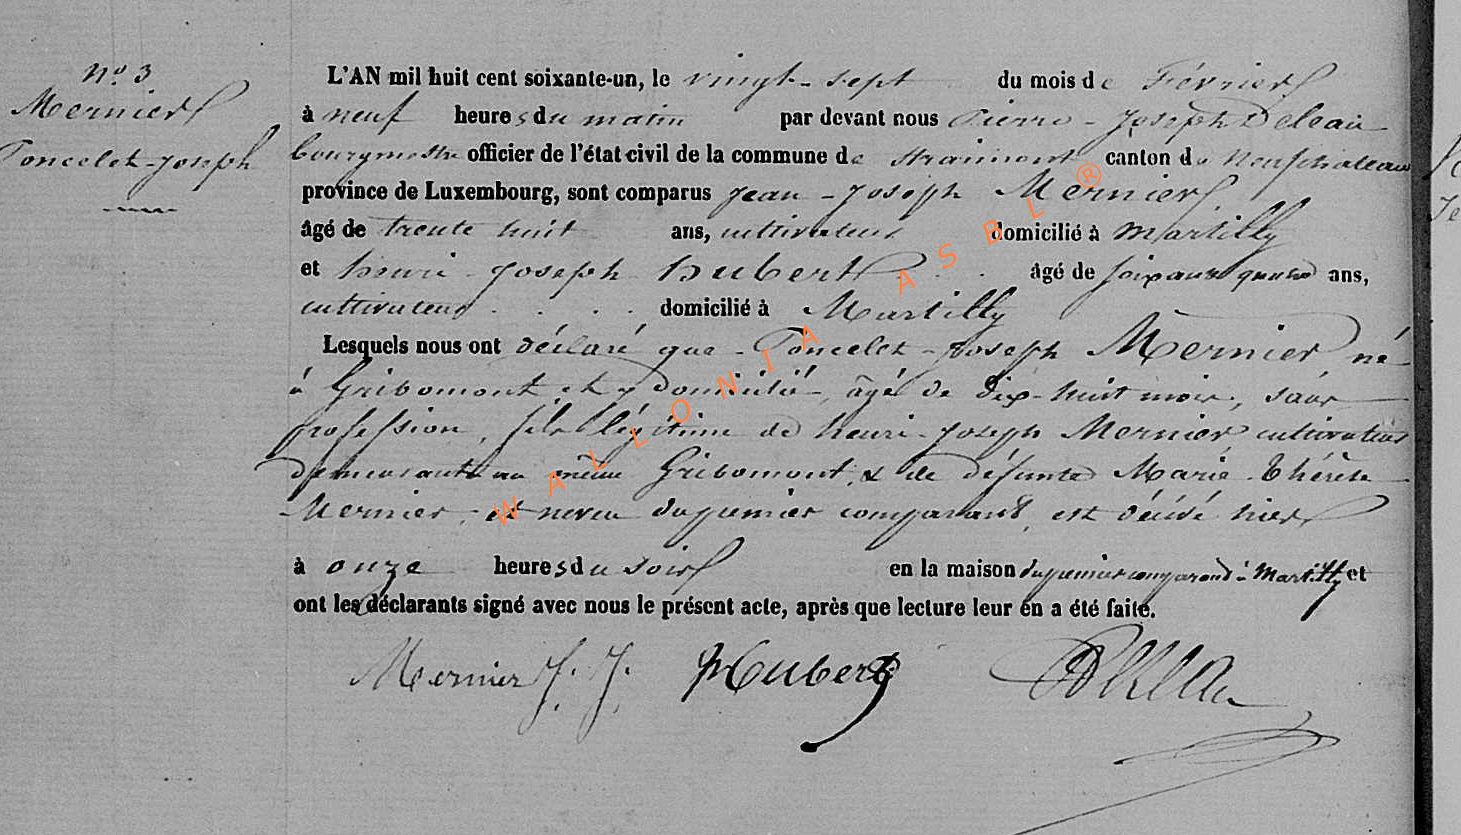 No 3
Mernier
Poncelet-Joseph
L'AN mil huit cent soixante-un, le vingt-sept du mois de Février
à neuf heures du matin par devant nous Pierre-Joseph
bourgmestre officier de l'état civil de la commune de Straimont canton de Neufchateau
province de Luxembourg, sont comparus Jean-Joseph Mernier
âgé de trente huit ans, cultivateur domicilié à Martilly
et henri-Joseph hubert âgé de ans,
cultivateur domicilié à Martilly
Lesquels nous ont déclaré que Poncelet-Joseph Mernier né
à Gribomont et y domicilié, âgé de dix-huit mois, sans
profession, fils légitime de henri-Joseph Mernier cultivateur
demeurant au même Gribomont, & de défunte Marie Thérèse
Mernier, et neveu du premier comparant, est décédé hier
à onze heures du soir en la maison du premier comparant à Martilly et
ont les déclarants signé avec nous le présent acte, après que lecture leur en a été faite.
Mernier J. J. Hubert
WALLONIA ASBL ®